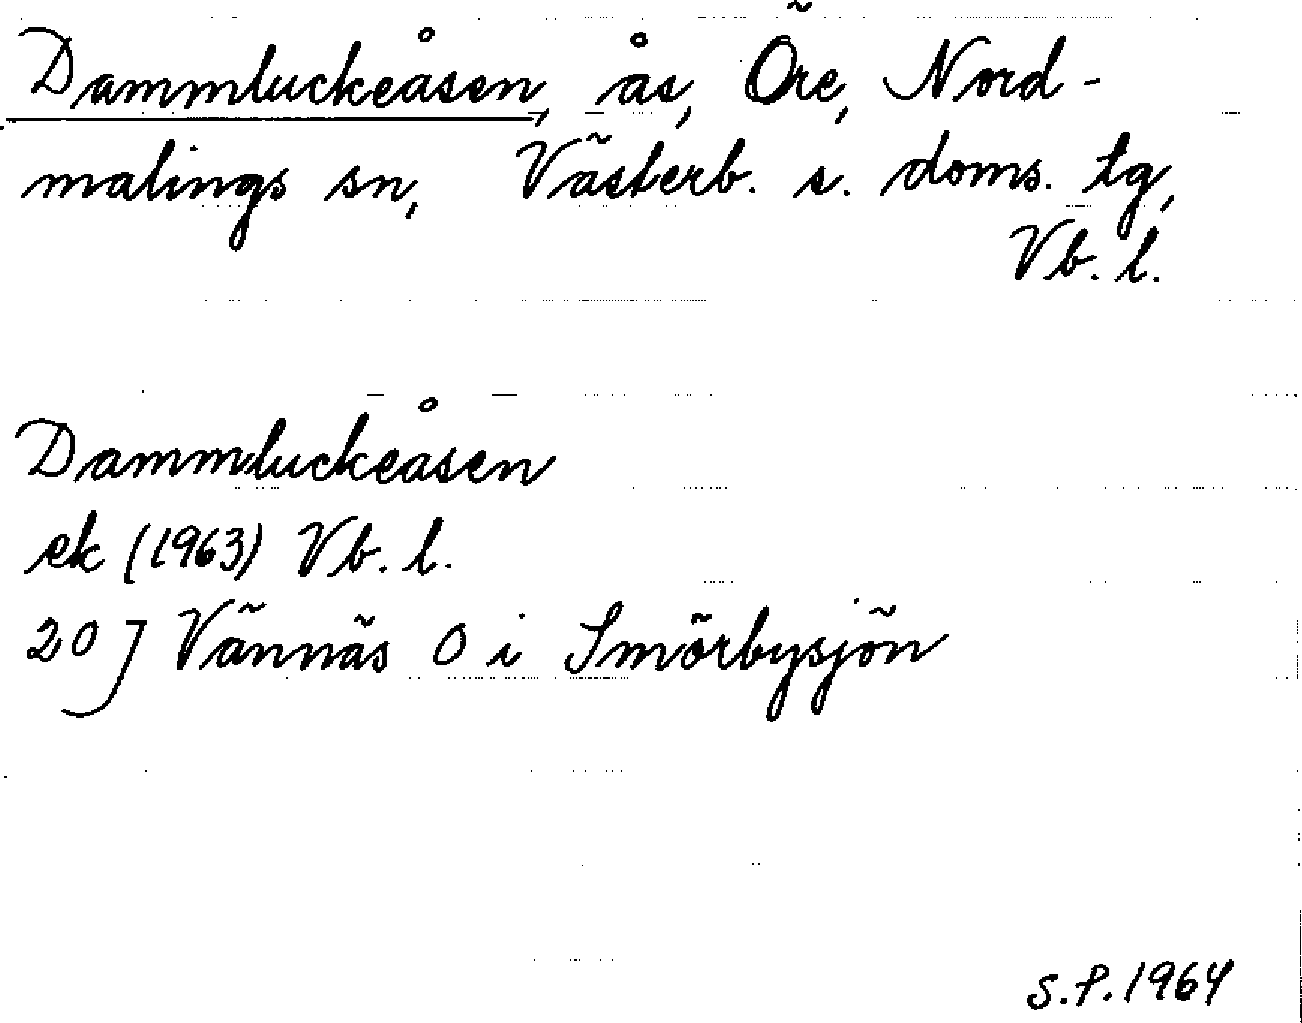 Dammluckeåsen, ås, Öre, Nord-
malings sn, Västerb. s. doms. tg,
Vb. l.
Dammluckeåsen
ek (1963) Vb. l.
20 J Vännäs O i Smörbysjön
S.P. 1964